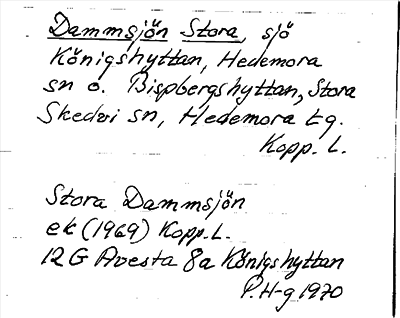 Dammsjön Stora, sjö
Königshyttan, Hedemora
sn o. Bispbergshyttan, Stora
Skedvi sn, Hedemora tg.
Kopp. L.
Stora Dammsjön
ek (1969) Kopp. L.
12 G Avesta 8a Königshyttan
P.H-g 1970